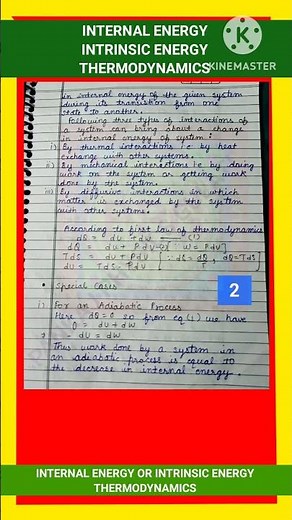 INTERNAL ENERGY
INTRINSIC ENERGY
THERMODYNAMICS
KINEMASTER
in internal energy of the given system
during its transition from one
state to another.
Following three types of interactions of
a system can bring about a change
in internal energy of system:
i) By thermal interactions i.e by heat
exchange with other systems.
ii) By mechanical interactions i.e by doing
work on the system or getting work
done by the system
iii) By diffusive interactions in which
matter is exchanged by the system
with other systems.
According to first law of thermodynamics
dQ = du + dw (1)
dQ = du + PdV
TdS = du + PdV
du = TdS - PdV
2
• Special Cases
i) For an Adiabatic Process
Here dQ=0 so from eq (1) we have
0 = du + dw
- du = dw
Thus work done by a system in
an adiabatic process is equal to
the decrease in internal energy.
INTERNAL ENERGY OR INTRINSIC ENERGY
THERMODYNAMICS